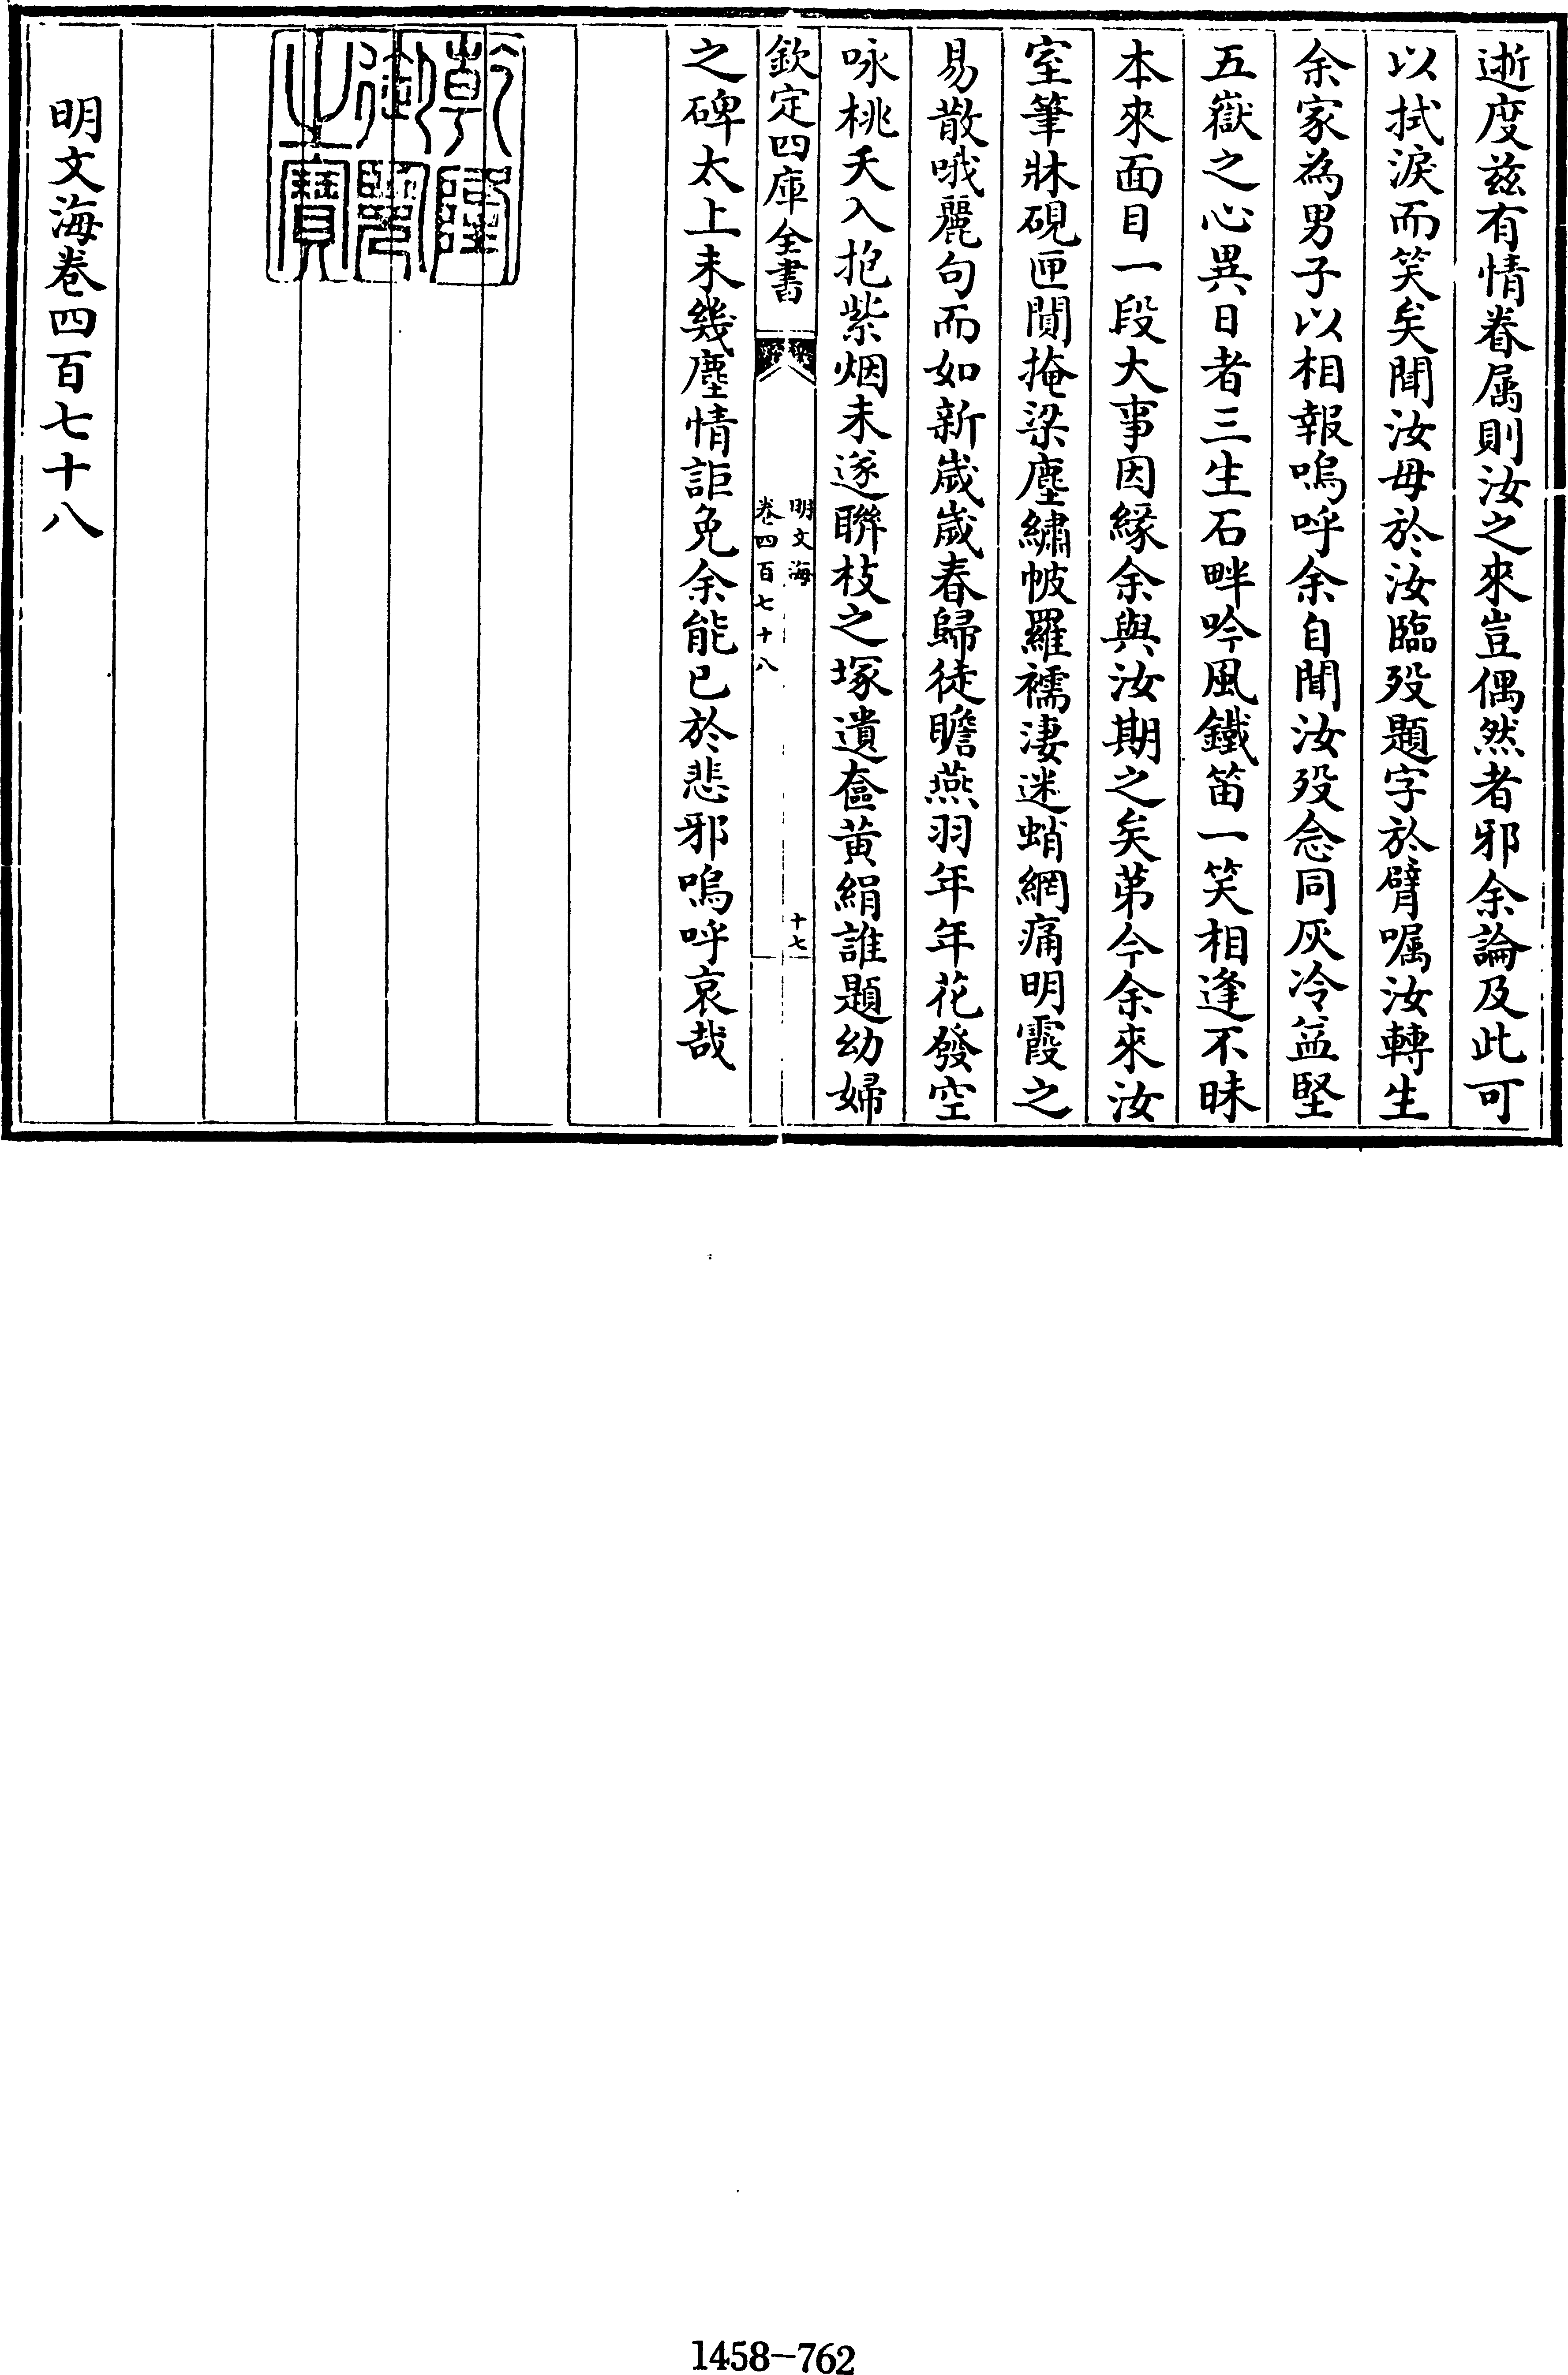 逝度兹有情眷属則汝之來豈偶然者邪余論及此可
以拭淚而笑矣聞汝母於汝臨歿題字於臂囑汝轉生
余家為男子以相報嗚呼余自聞汝歿念同灰冷益堅
五嶽之心異日者三生石畔吟風鐵笛一笑相逢不昧
本來面目一段大事因緣余與汝期之矣苐今余來汝
室筆牀硯匣閴掩梁塵繡帔羅襦淒迷蛸網痛明霞之
易散哦麗句而如新嵗嵗春歸徒瞻燕羽年年花發空
咏桃夭入抱紫烟未遂聨枝之塚遺奩黄絹誰題幼婦
欽定四庫全書
明文海
卷四百七十八
十七
之碑太上未幾塵情詎免余能已於悲邪嗚呼哀哉
乾隆御覽之寶
明文海卷四百七十八
1458-762